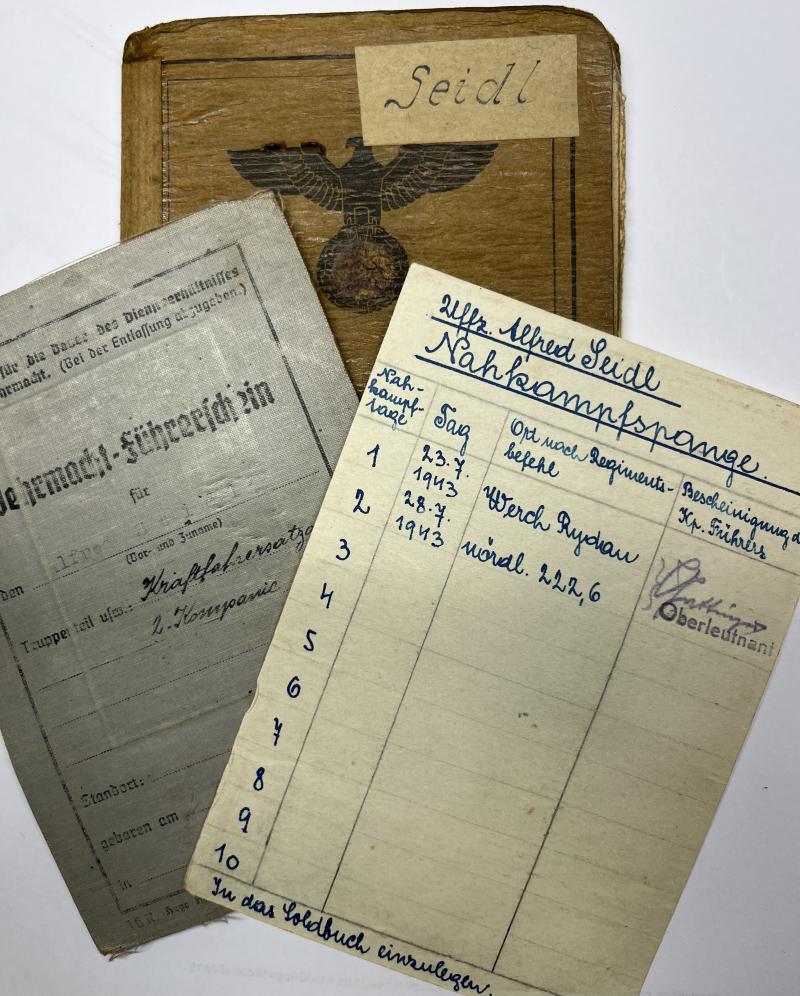 Seidl
für die Dauer des Dienstverhältnisses
(Bei der Entlassung abzugeben.)
Wehrmacht-Führerschein
für
den Alfred
(Vor- und Zuname)
Truppenteil usw.: Kraftfahrersatz
2. Kompanie
Standort:
geboren am
in
Uffz. Alfred Seidl
Nahkampfspange.
Nah-
kampf-
tage
Tag
Ort nach Regiments-
befehl
Bescheinigung d
Kp. Führers
1 23.7. 1943 Werch Rydau
2 28.7. 1943 nördl. 222,6
Oberleutnant
3
4
5
6
7
8
9
10
In das Soldbuch einzulegen.